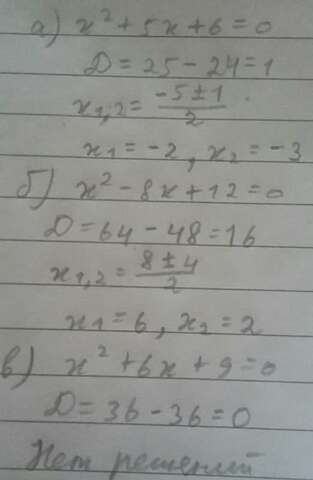 а) x² + 5x + 6 = 0
D = 25 - 24 = 1
x₁,₂ = (-5 ± 1)/2
x₁ = -2, x₂ = -3
б) x² - 8x + 12 = 0
D = 64 - 48 = 16
x₁,₂ = (8 ± 4)/2
x₁ = 6, x₂ = 2
в) x² + 6x + 9 = 0
D = 36 - 36 = 0
Нет решений